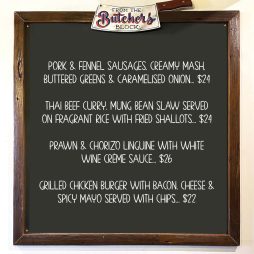 FROM THE
Butcher's
BLOCK
PORK & FENNEL SAUSAGES, CREAMY MASH,
BUTTERED GREENS & CARAMELISED ONION... $24
THAI BEEF CURRY, MUNG BEAN SLAW SERVED
ON FRAGRANT RICE WITH FRIED SHALLOTS... $24
PRAWN & CHORIZO LINGUINE WITH WHITE
WINE CRÈME SAUCE... $26
GRILLED CHICKEN BURGER WITH BACON, CHEESE &
SPICY MAYO SERVED WITH CHIPS... $22